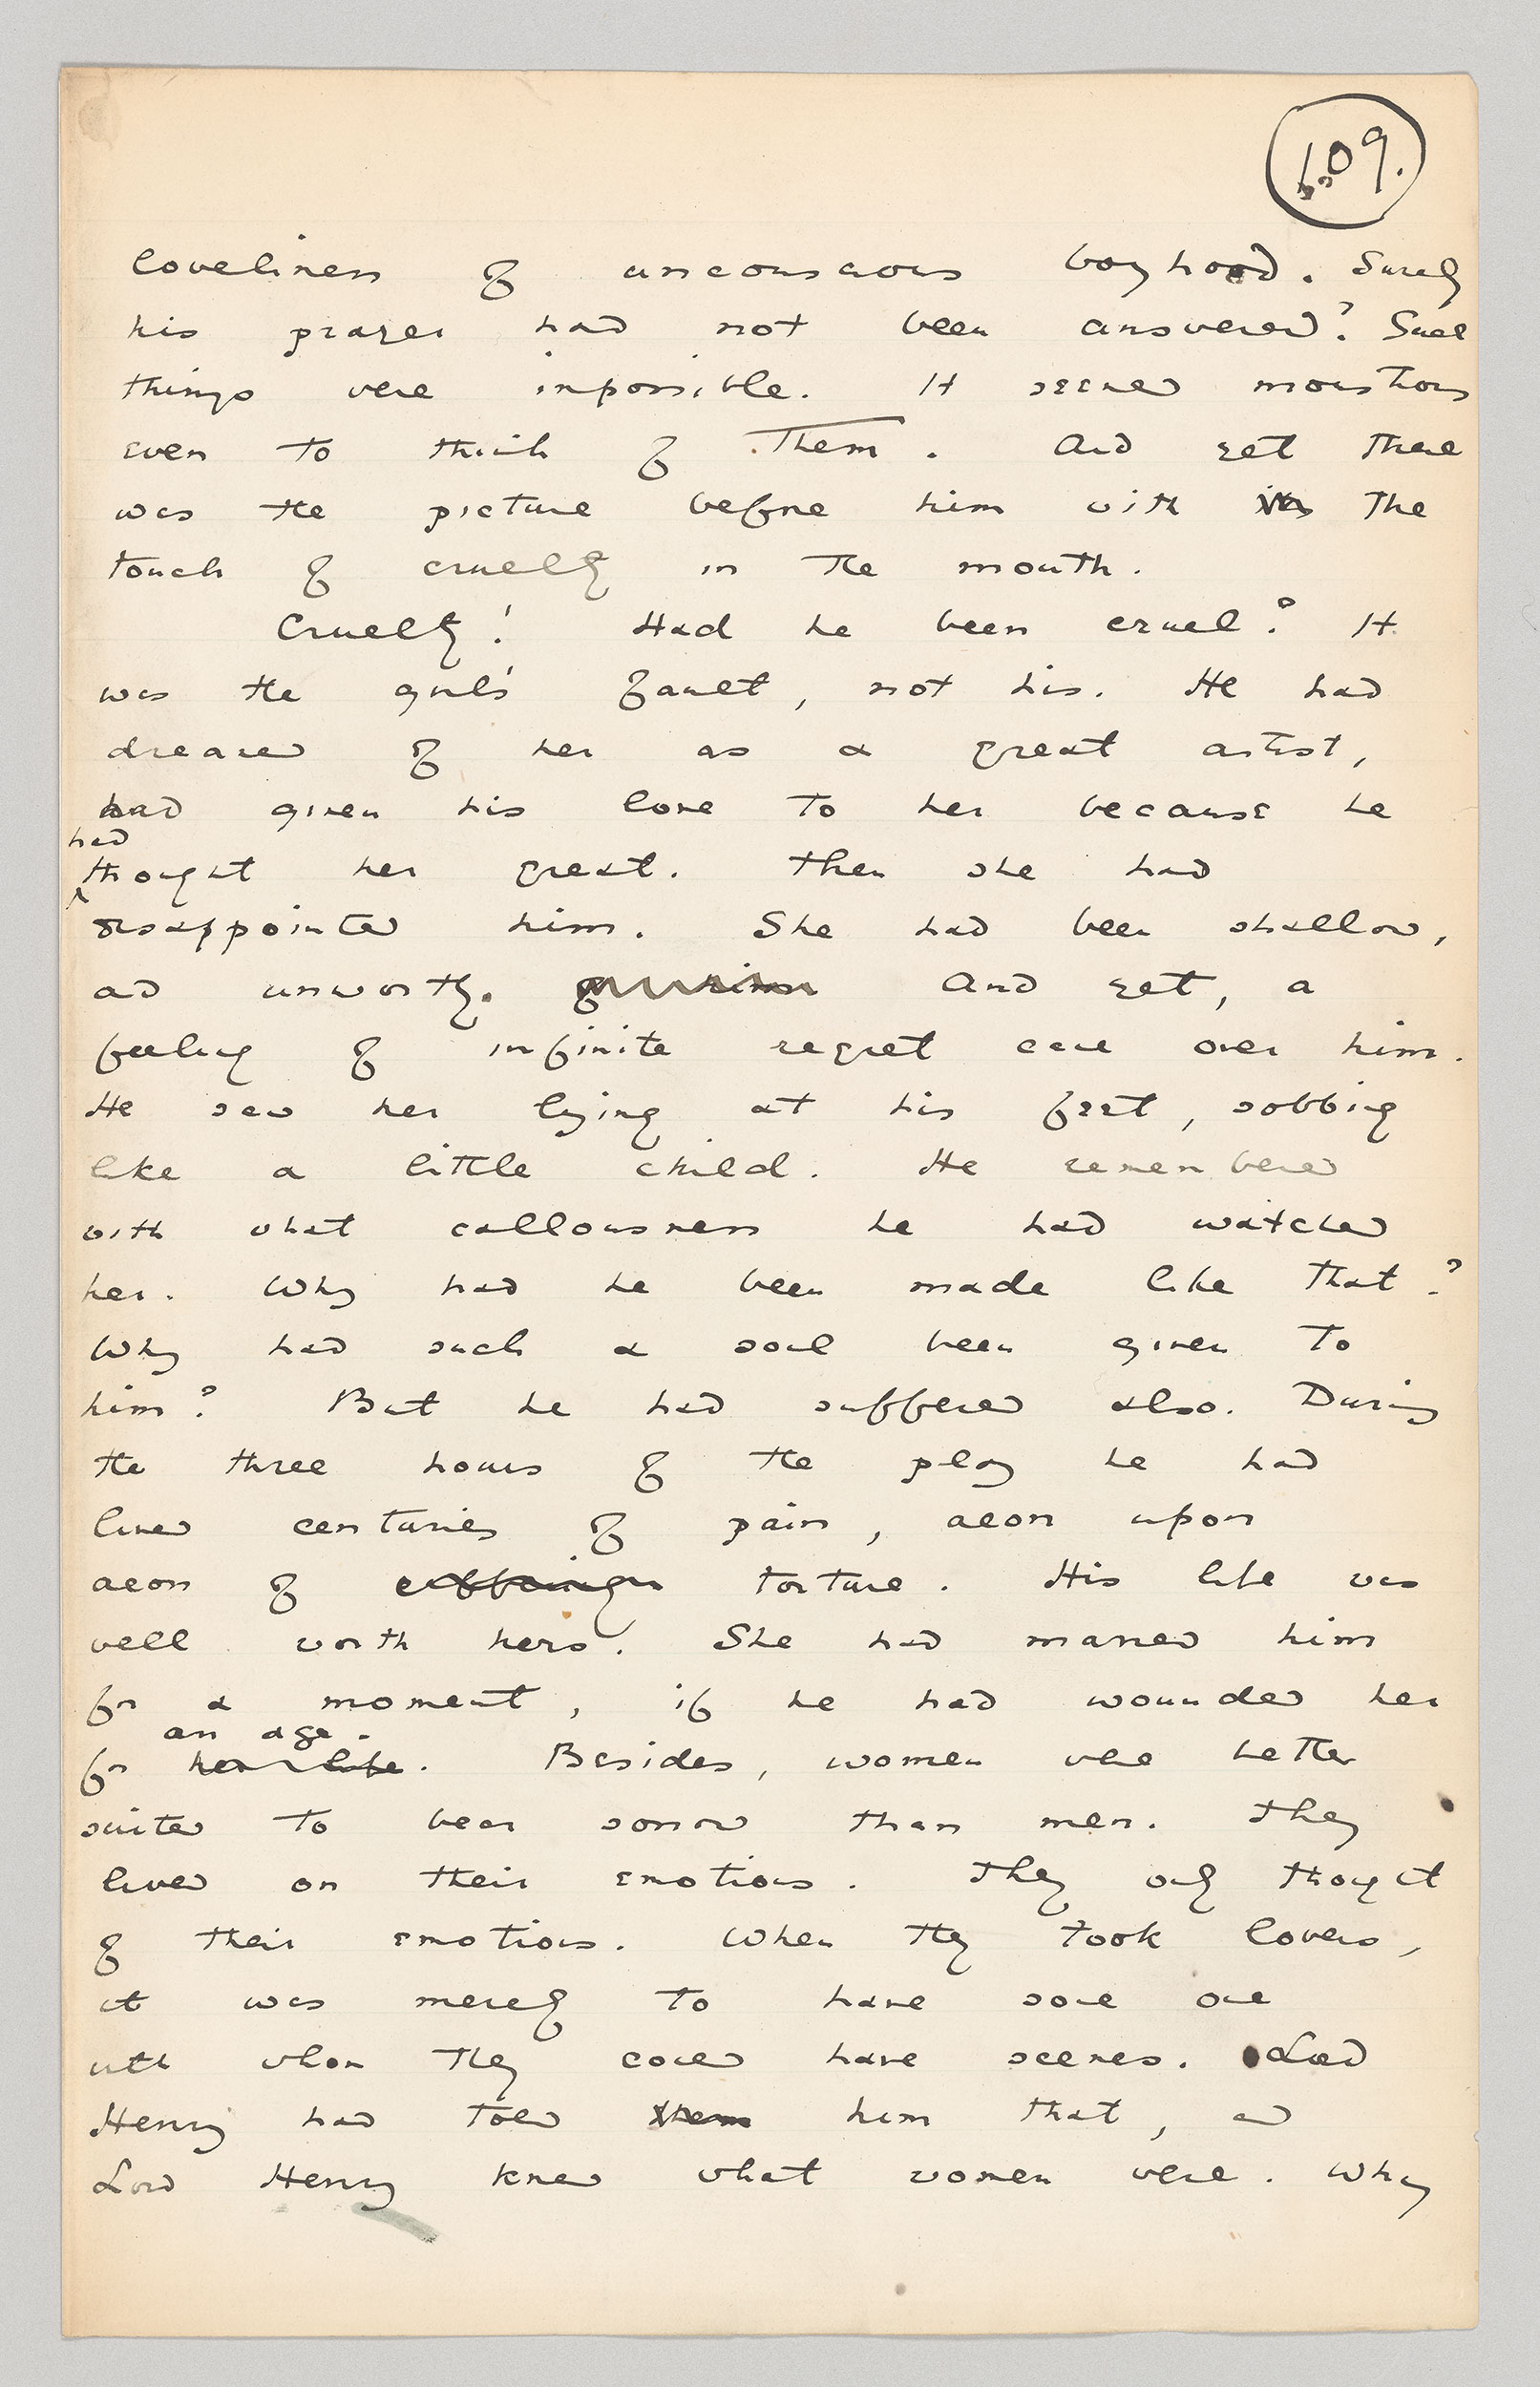 109.
loveliness of unconscious boyhood. Surely
his prayer had not been answered? Such
things were impossible. It seemed monstrous
even to think of them. And yet there
was the picture before him with its the
touch of cruelty in the mouth.
Cruelty! Had he been cruel? It
was the girl's fault, not his. He had
dreamed of her as a great artist,
had given his love to her because he
had
thought her great. Then she had
disappointed him. She had been shallow,
and unworthy. And yet, a
feeling of infinite regret came over him.
He saw her lying at his feet, sobbing
like a little child. He remembered
with what callousness he had watched
her. Why had he been made like that?
Why had such a soul been given to
him? But he had suffered also. During
the three hours of the play he had
lived centuries of pain, aeon upon
aeon of torture. His life was
well worth hers. She had marred him
for a moment, if he had wounded her
an age.
for her life. Besides, women were better
suited to bear sorrow than men. They
lived on their emotions. They only thought
of their emotions. When they took lovers,
it was merely to have some one
with whom they could have scenes. Lord
Henry had told them him that, and
Lord Henry knew what women were. Why